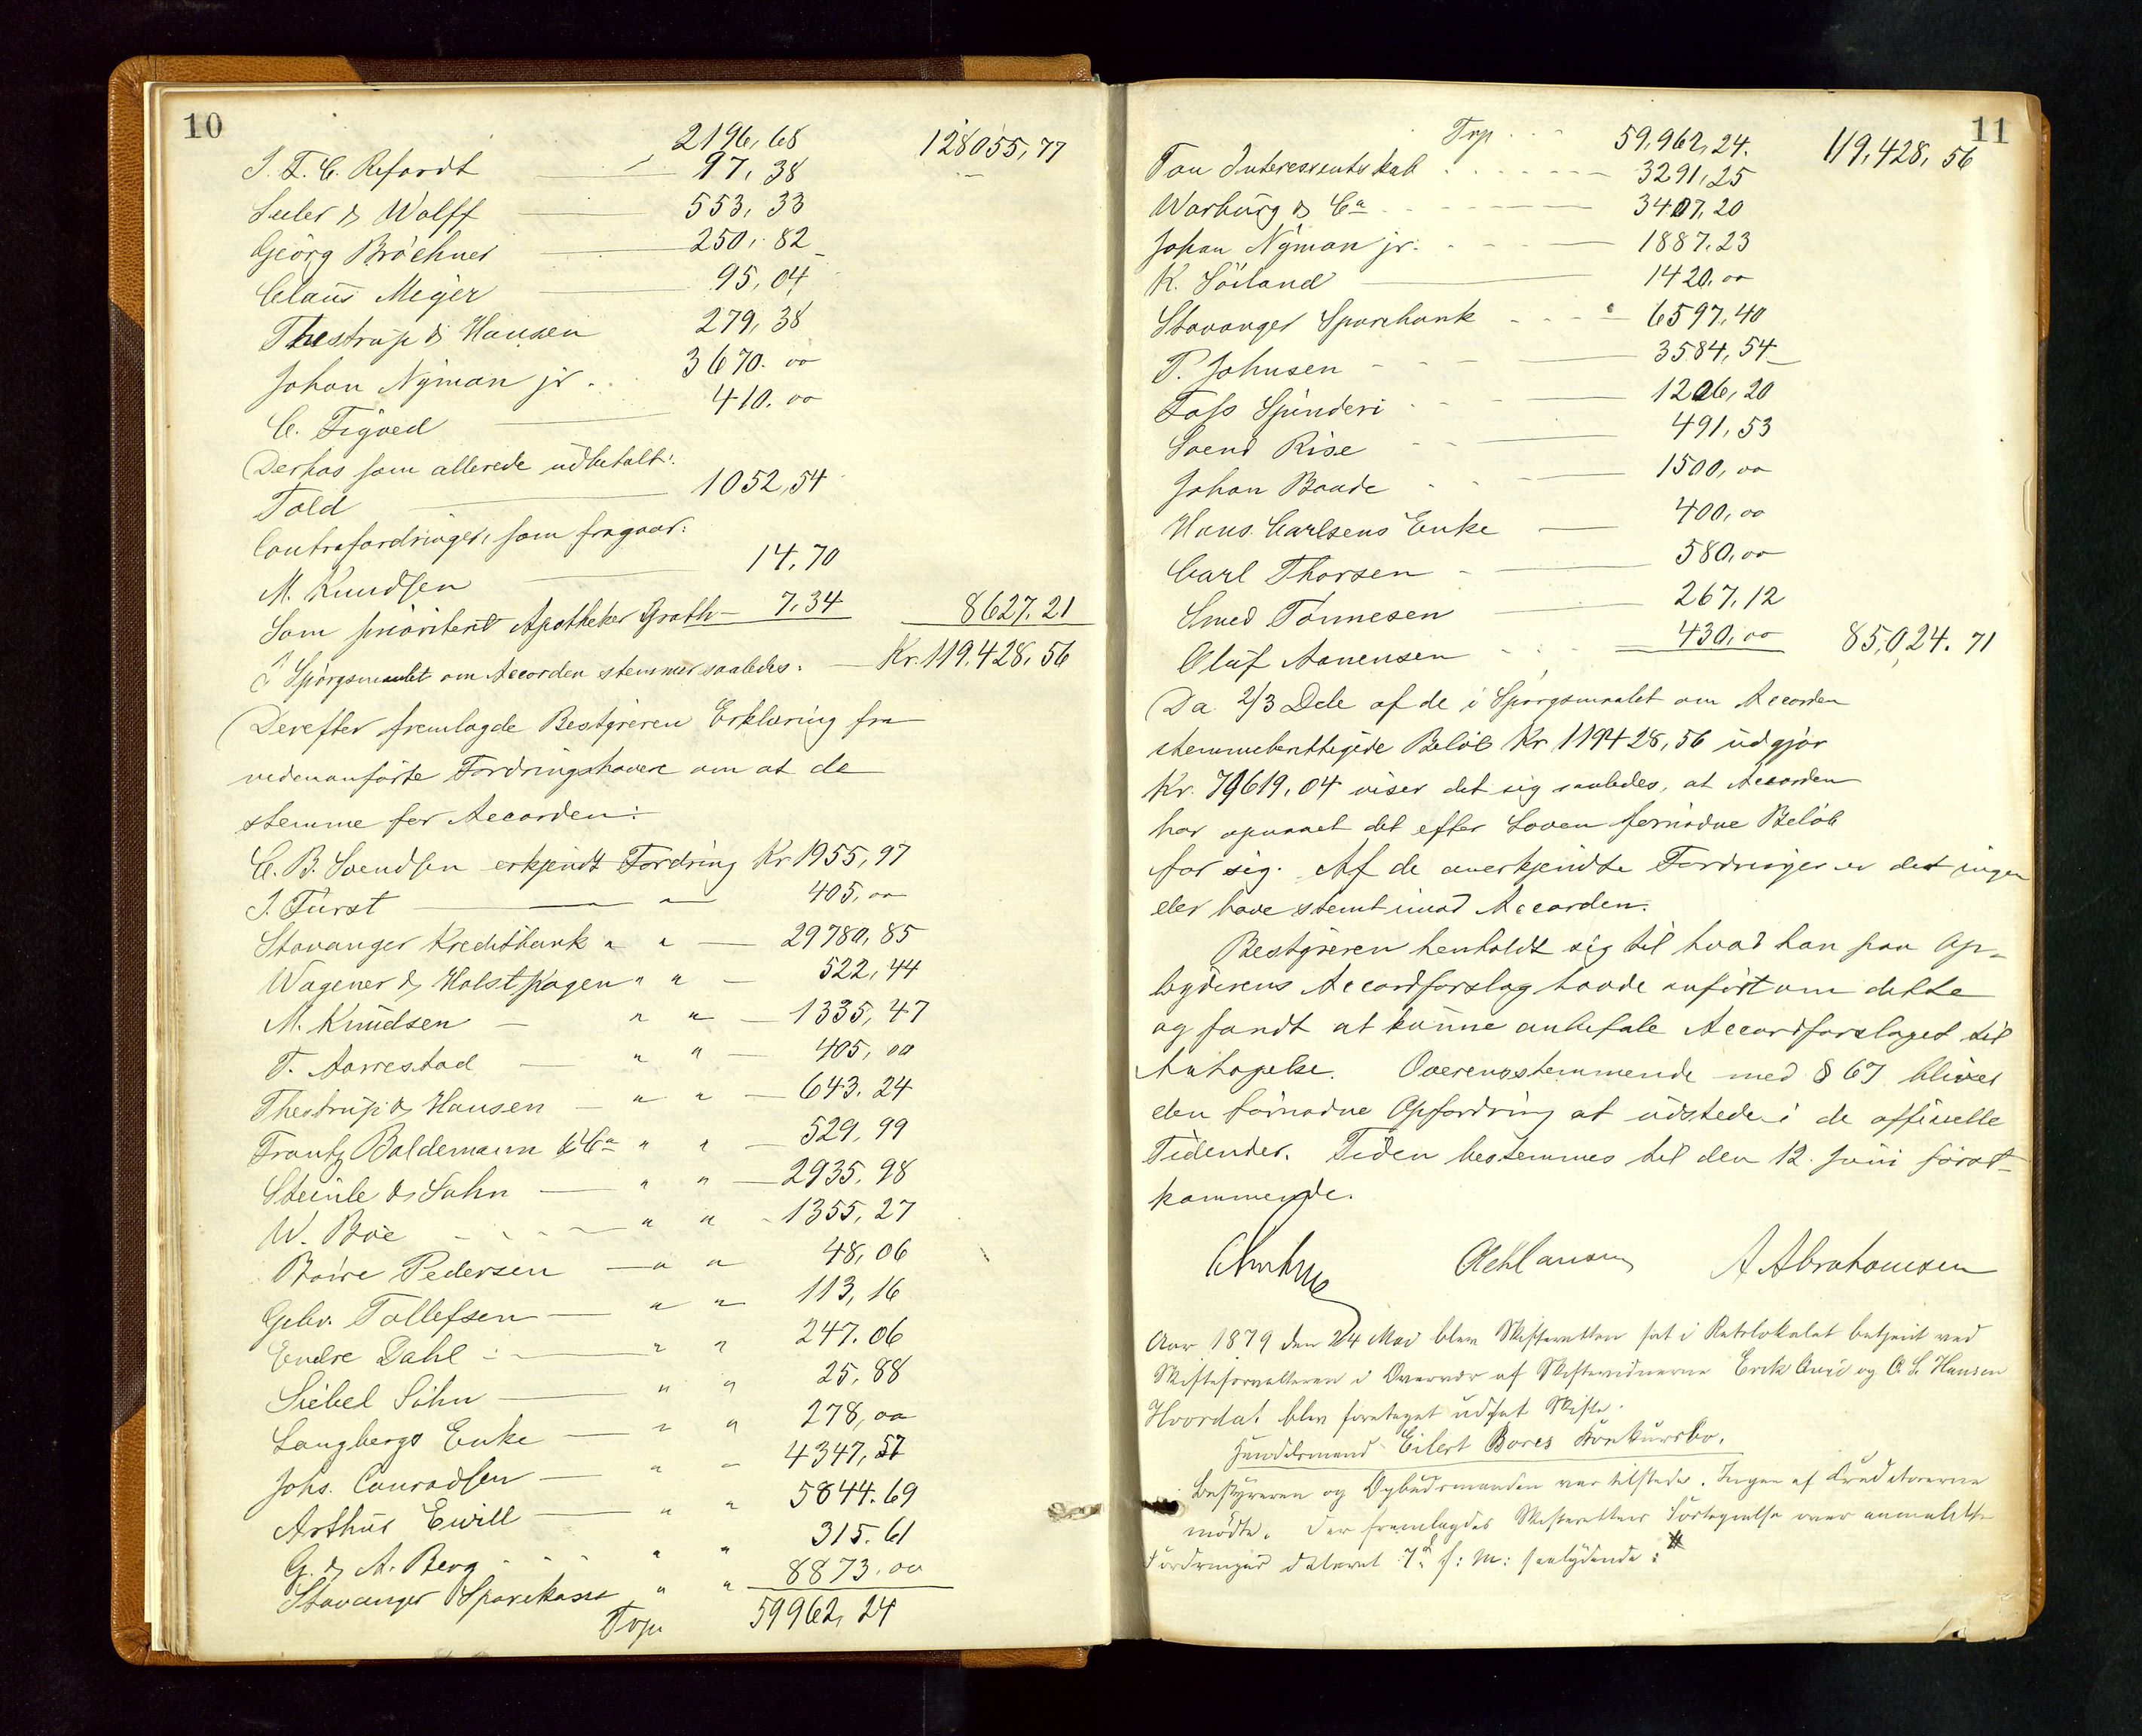 10
2196,68 128055,77
J. F. C. Refardt 97,38
Seeler & Wolff 553,33
Georg Bröchner 250,82
Claus Meyer 95,04
Thestrup & Hansen 279,38
Johan Nyman jr. 3670.00
C. Tigoed 410.00
Derhos som allerede udbetalt:
Told 1052,54
Contrafordringer, som fragaar:
M. Knudsen 14,70
Som prioriteret Apotheker Groth 7,34 8627.21
I Spørgsmaalet om Accorden stemmer saaledes: Kr. 119,428,56
Derefter fremlagde Bestyreren Erklæring fra
nedenanførte Fordringshavere om at de
stemme for Accorden:
C. B. Svendsen erkjendt Fordring Kr 1955,97
J. Fürst " " 405,00
Stavanger Kreditbank " " 29780,85
Wagener & Holsthagen " " 522,44
M. Knudsen " " 1335,47
T. Aarrestad " " 405,00
Thestrup & Hansen " " 643.24
Frantz Baldemann & Ca " " 529,99
Steinle & Sohn " " 2935,98
W. Boe " " 1355,27
Baire Pedersen " " 48,06
Gebr. Tollefsen " " 113,16
Endre Dahl " " 247.06
Siebel Söhn " " 25,88
Langbergs Enke " " 278,00
Johs. Conradsen " " 4347,57
Arthur Ewill " " 5844.69
G. & A. Berg " " 315.61
Stavanger Sparekasse " " 8873.00
Trp 59962,24
11
Trp 59,962,24. 119,428,56
Tou Interessentskab 3291,25
Warburg & Ca 3407,20
Johan Nyman jr. 1887,23
K. Söiland 1420,00
Stavanger Sparebank 6597,40
P. Johnsen 3584,54
Tofs Sjunderi 1206,20
Svend Rise 491,53
Johan Baade 1500,00
Hans Carlsens Enke 400,00
Carl Thorsen 580,00
Smed Tönnesen 267,12
Oluf Aanensen 430,00 85,024.71
Da 2/3 Dele af de i Spørgsmaalet om Accorden
stemmeberettigede Beløb Kr 119428,56 udgjør
Kr. 79619,04 viser det sig saaledes, at Accorden
har opnaaet det efter Loven fornødne Beløb
for sig. Af de anerkjendte Fordringer er det ingen
der have stemt imod Accorden.
Bestyreren henholdt sig til hvad han paa Op-
byderens Accordforslag havde anført om dette
og fandt at kunne anbefale Accordforslaget til
Antagelse. Overensstemmende med § 67 bliver
den fornødne Opfordring at udstede i de officielle
Tidender. Tiden bestemmes til den 12. Juni først-
kommende.
A Abrahamsen
Aar 1879 den 24 Mai blev Skifteretten sat i Retslokalet betjent ved
Skifteforvalteren i Overvær af Skiftevidnerne Erik Aníe og O. S. Hansen
Hvorda! blev foretaget udsat Skifte.
Handelsmand Eilert Bores Konkursbo.
Bestyreren og Opbudsmanden var tilstede. Ingen af Kreditorerne
mödte. Der fremlagdes Skifterettens Fortegnelse over anmeldte
Fordringer dateret 7de f: M: saalydende: